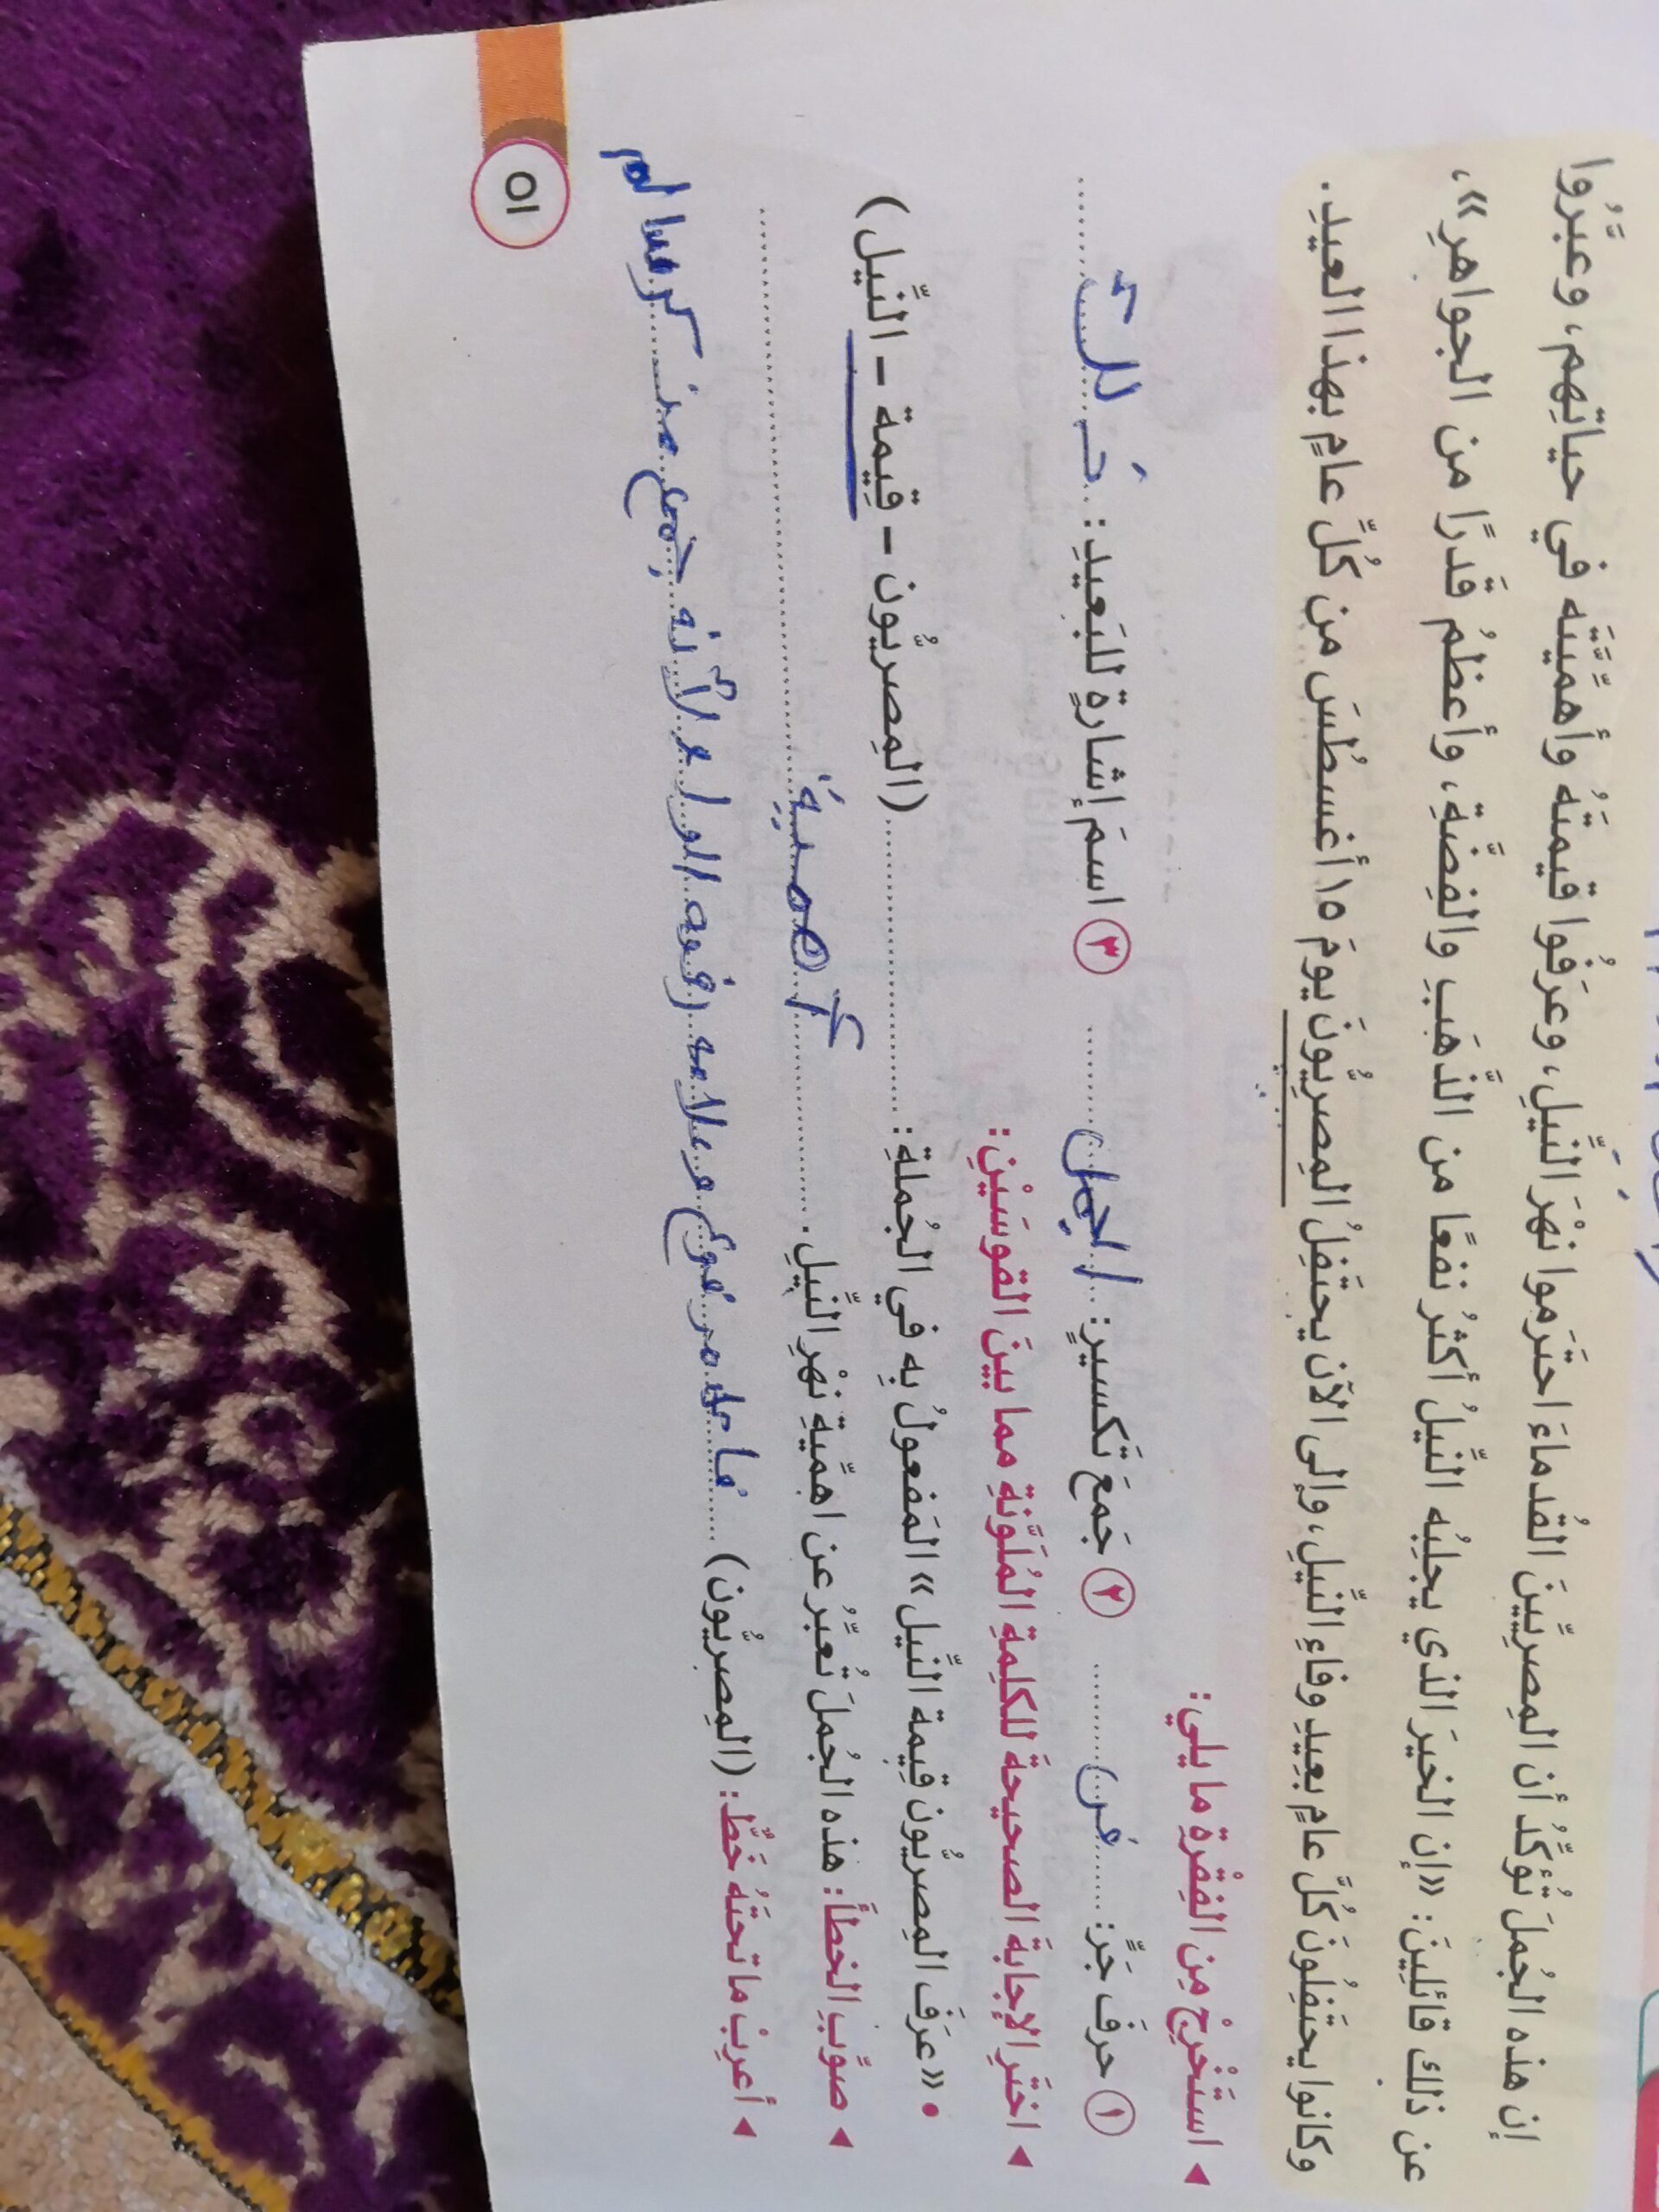 إن هذه الجُملَ تُؤكِّدُ أن المِصرِيِّينَ القُدماءَ احتَرَموا نهْرَ النِّيلِ، وعرَفُوا قيمتَهُ وأهمِّيَّتَه في حياتِهم، وعبَّروا
عن ذلك قائلِينَ: «إن الخيرَ الذي يجلِبُه النِّيلُ أكثرُ نفعًا من الذَّهَبِ والفِضَّةِ، وأعظمُ قَدرًا من الجواهرِ»،
وكانوا يحتَفِلُونَ كُلَّ عامٍ بعِيدِ وفاءِ النِّيلِ، وإلى الآن يحتَفِلُ المِصرِيُّونَ يومَ ١٥ أغسطُسَ من كُلِّ عامٍ بهذا العيدِ.
◄ استَخْرِجْ مِن الفِقرةِ ما يلي:
١ حرفَ جَرٍّ: عن ٢ جَمعَ تَكسيرٍ: الجمل ٣ اسمَ إشارةٍ للبَعيدِ: ذَلك
◄ اختَرِ الإجابةَ الصحيحةَ للكلِمةِ المُلوَّنةِ مما بينَ القوسَيْنِ:
• «عرَفَ المِصرِيُّون قِيمة النِّيل» المَفعولُ بِه في الجُملةِ: (المِصرِيُّون – قِيمة – النِّيل)
◄ صوِّبِ الخطأَ: هذه الجُملَ تُعبِّرُ عن اهمِّيةِ نهْرِ النِّيلِ. أهميةُ
◄ أعرِبْ ما تحتَهُ خَطٌّ: (المِصرِيُّون) فاعل مرفوع وعلامه رفعه الواو لأنه جمع مذكر سالم
٥١